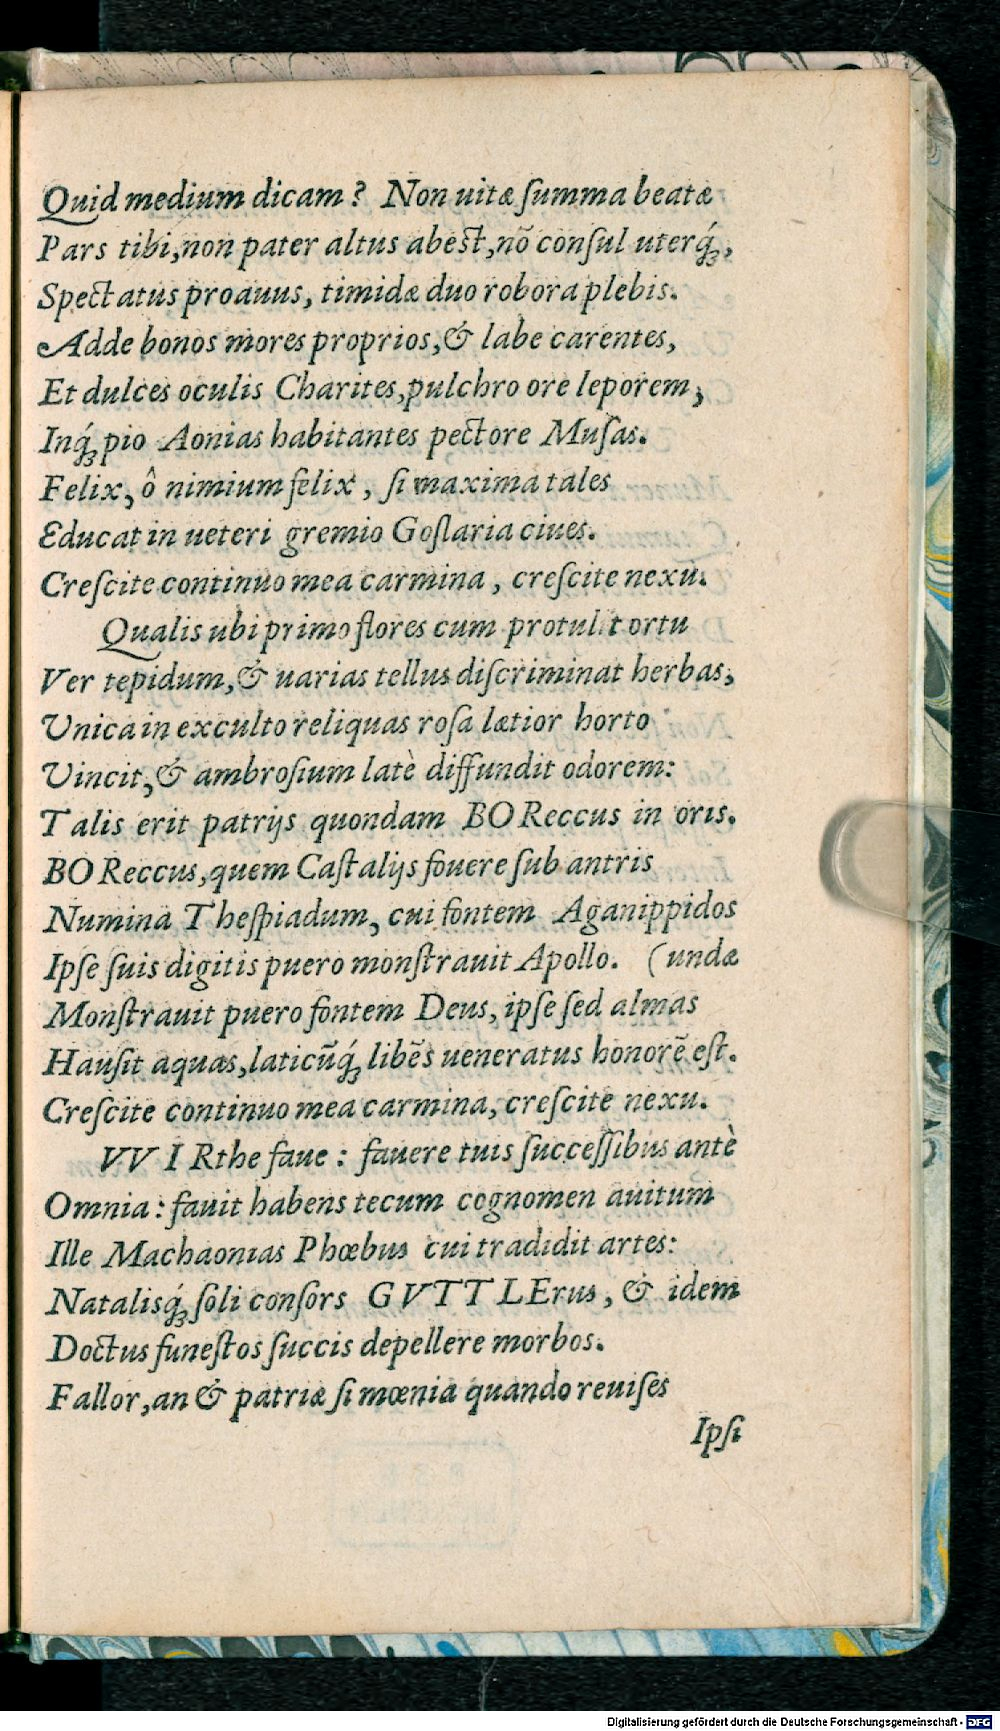 Quid medium dicam? Non uitæ ſumma beatæ
Pars tibi, non pater altus abest, nõ conſul uterq́;,
Spectatus proauus, timidæ duo robora plebis.
Adde bonos mores proprios, & labe carentes,
Et dulces oculis Charites, pulchro ore leporem,
Inq́; pio Aonias habitantes pectore Muſas.
Felix, ô nimium felix, ſi maxima tales
Educat in ueteri gremio Goſlaria ciues.
Creſcite continuo mea carmina, creſcite nexu.
Qualis ubi primo flores cum protulit ortu
Ver tepidum, & uarias tellus diſcriminat herbas,
Vnica in exculto reliquas roſa lætior horto
Vincit, & ambroſium latè diffundit odorem:
Talis erit patrijs quondam BOReccus in oris.
BOReccus, quem Caſtalijs fouere ſub antris
Numina Theſpiadum, cui fontem Aganippidos
Ipſe ſuis digitis puero monſtrauit Apollo. (undæ
Monſtrauit puero fontem Deus, ipſe ſed almas
Hauſit aquas, laticũq́; libẽs ueneratus honorẽ eſt.
Creſcite continuo mea carmina, creſcite nexu.
VVIRthe faue: fauere tuis ſucceſſibus antè
Omnia: fauit habens tecum cognomen auitum
Ille Machaonias Phœbus cui tradidit artes:
Natalisq́; ſoli conſors GVTTLErus, & idem
Doctus funeſtos ſuccis depellere morbos.
Fallor, an & patriæ ſi mœnia quando reuiſes
Ipſi
Digitalisierung gefördert durch die Deutsche Forschungsgemeinschaft - DFG